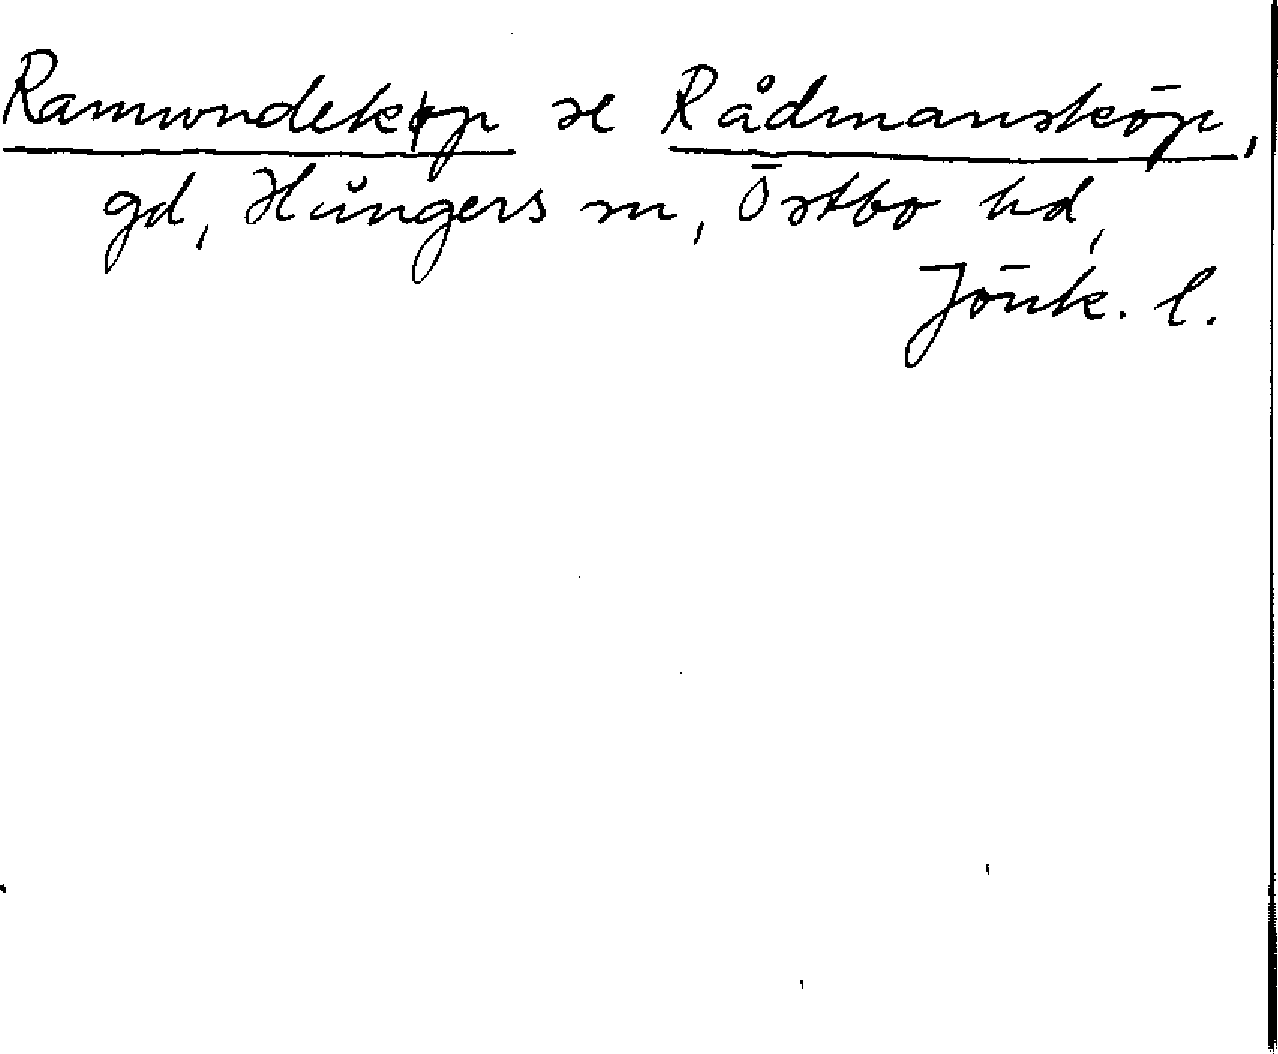 Ramundekøp se Rådmansköp,
gd, Hångers sn, Östbo hd,
Jönk. l.